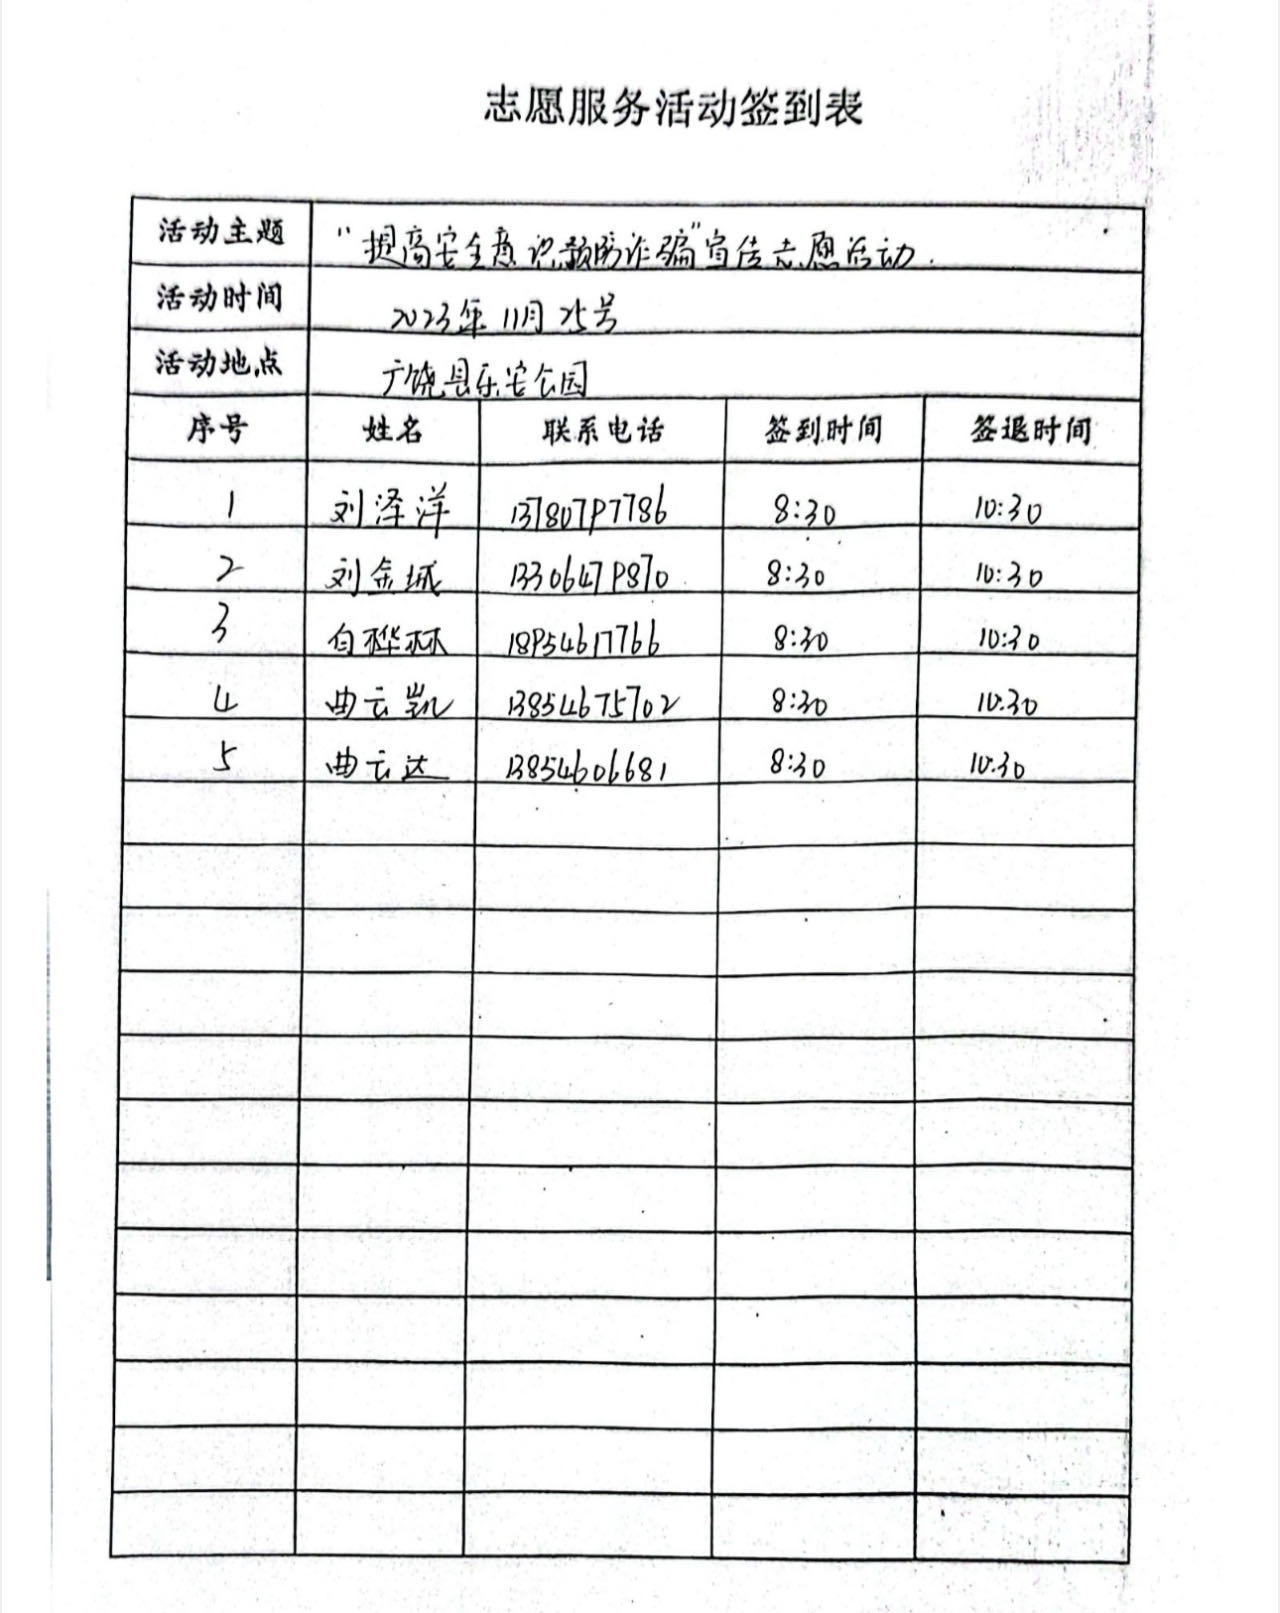 志愿服务活动签到表
活动主题 “提高安全意识预防诈骗”宣传志愿活动.
活动时间 2023年11月25号
活动地点 广饶县乐安公园
序号 姓名 联系电话 签到时间 签退时间
1 刘泽洋 13780797786 8:30 10:30
2 刘金城 13306479870 8:30 10:30
3 白桦林 18954617766 8:30 10:30
4 曲云凯 13854675702 8:30 10:30
5 曲云达 13854606681 8:30 10:30